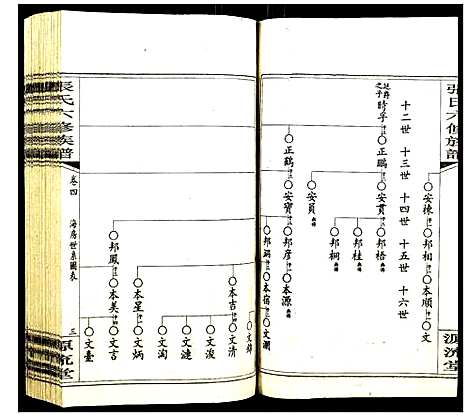 張氏六修族譜
源流堂
安棟
邦相
本順
文
十二世
十三世
十四世
十五世
十六世
廷爵之子
時孚
正鵬
安貫
邦梧
邦桂
邦桐
安員
正鶴
安寶
邦彦
本源
本宿
文瀾
文緯
本吉
文清
文浚
文漣
文淘
本星
文炳
邦鳳
本美
文言
文臺
張氏六修族譜
卷四
海房世系圖表
三
源流堂